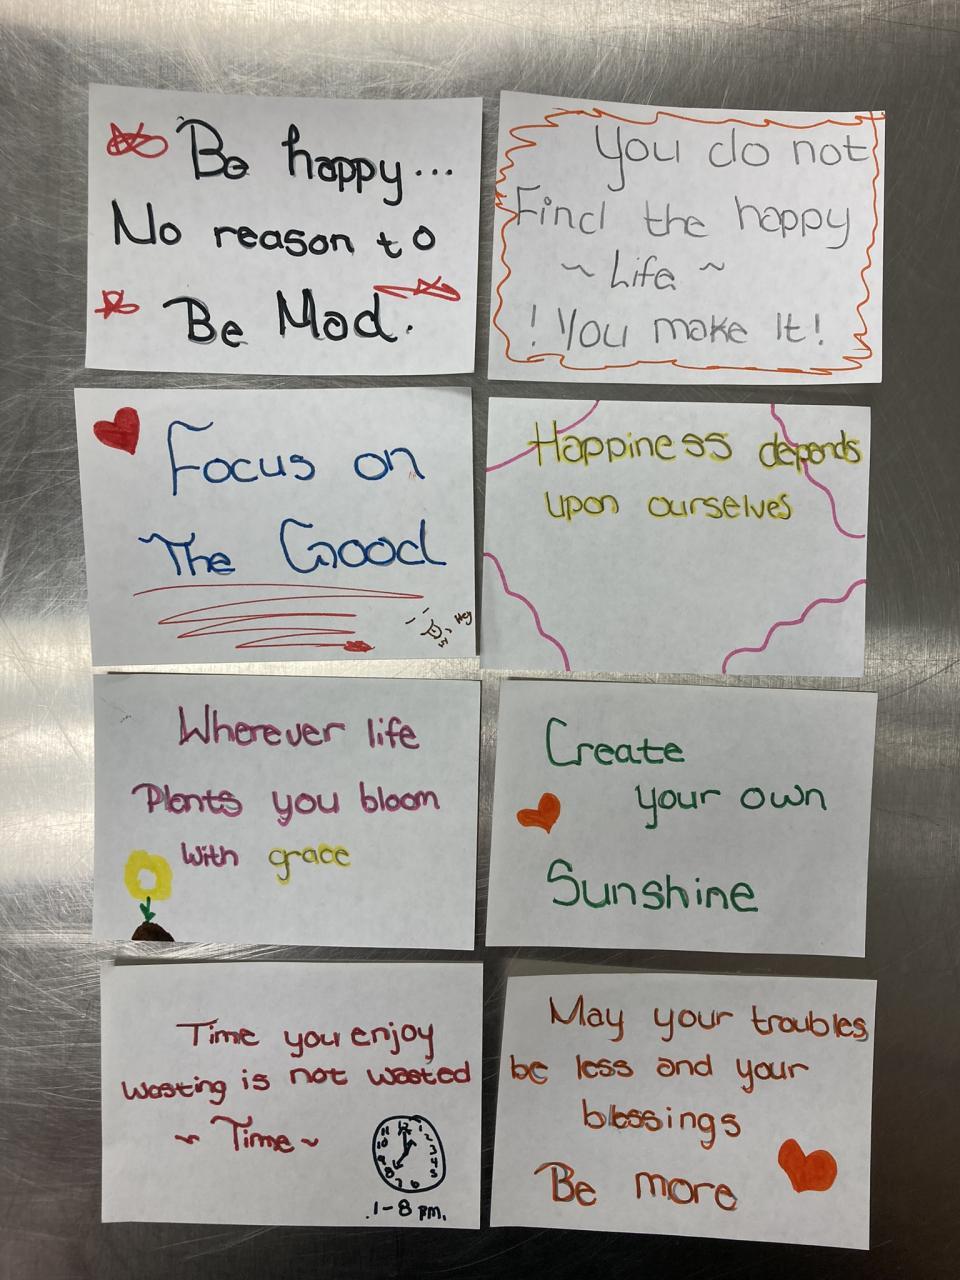 Be happy...
No reason to
Be Mad.
You do not
Find the happy
~ Life ~
! You make It!
Focus on
The Good
Hey
Happiness depends
upon ourselves
Wherever life
Plants you bloom
with grace
Create
your own
Sunshine
Time you enjoy
wasting is not wasted
~ Time ~
11 12 1
10 2
9 3
8 4
7 6 5
1-8 pm.
May your troubles
be less and your
blessings
Be more